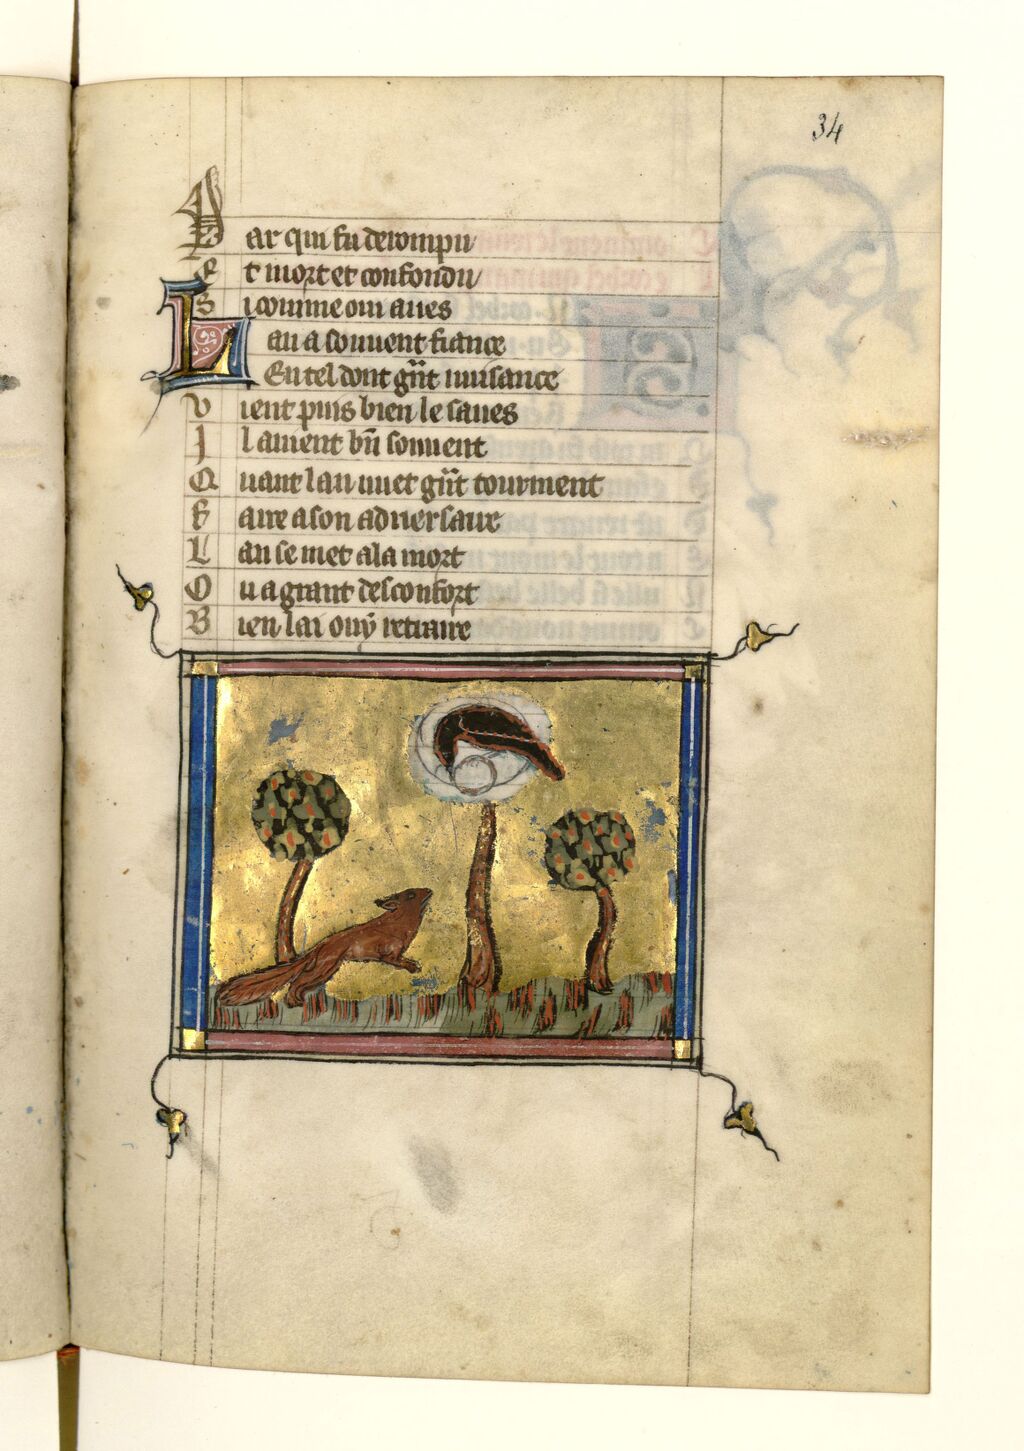 34
Par qui fu derompu
Et mort et confondu
Si comme oui aues
La u a souuent fiance
En tel dont gñt nuisance
Vient puis bien le saues
Il auient bñ souuent
Quant lan uuet gñt tourment
Faire a son aduersaire
Lan se met a la mort
Ou a grant desconfort
Bien lai ouy retraire